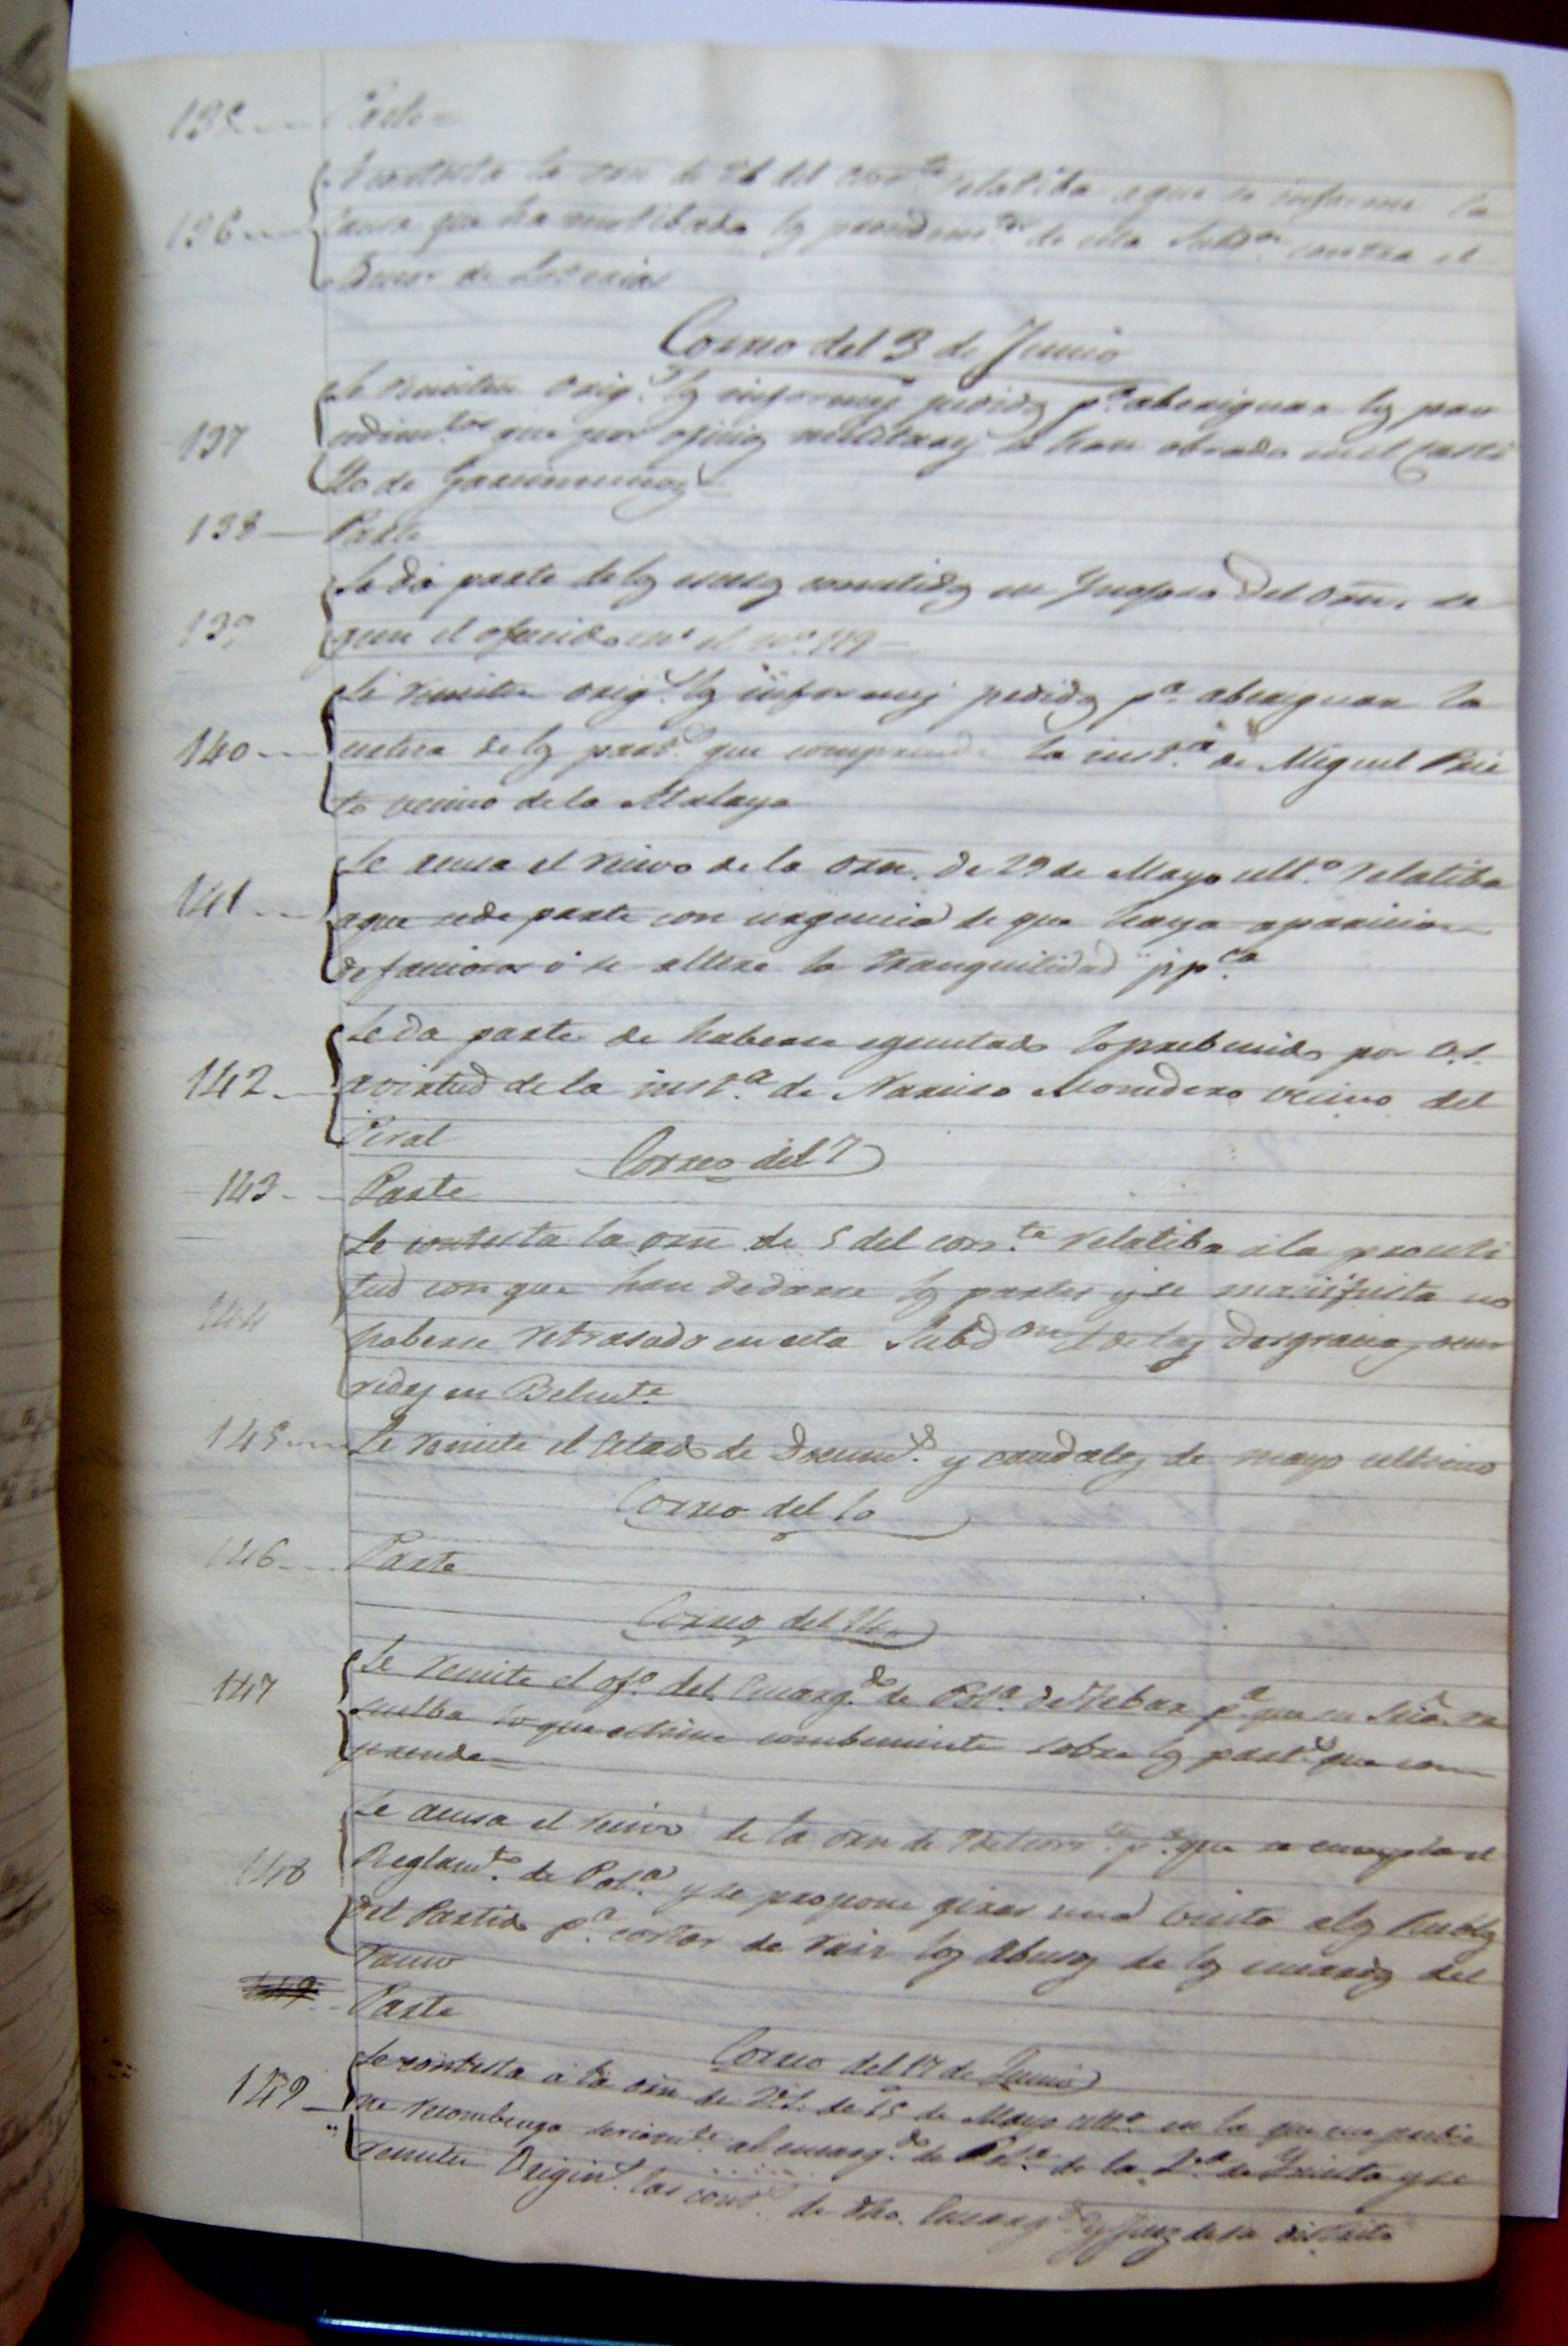 135 Parte
Se contesta la orn de 26 del corr.te relatiba a que se informe la
136 causa que ha motibado los procedim.tos de esta Subd.on contra el
de Loterias
Correo del 3 de Junio
Se remiten orig.s los informes pedidos p.a aberiguar los proce
137 edim.tos que por oficios militares se han obrado en el Casti
llo de Garcimuñoz
138 Parte
Se da parte de los cometidos en Ynojoso del orn. se
139 gun el ofrecido en el n.o 119
Se remiten orig.s los informes pedidos p.a aberiguar la
140 certeza de los part.s que comprende la inst.a de Miguel Prie
to vecino de la Atalaya
Se acusa el recivo de la orn. de 29 de Mayo ult.o relatiba
141 a que se de parte con urgencia de que haya aparicion
de facciosos ó se altere la tranquilidad pp.ca
Se da parte de haberse egecutado lo prebenido por V.S.
142 a virtud de la inst.a de Narciso Monedero vecino del
Peral
Correo del 7
143 Parte
Se contesta la orn de 5 del corr.te relatiba a la pronti
tud con que han de darse los partes y se manifiesta no
144 haberse retrasado en esta Subd.on el de las desgracias ocur
ridas en Belmt.e
145 Se remite el Estado de Docum.s y caudales de mayo ultimo
Correo del 10
146 Parte
Correo del 14
147 Se remite el of.o del Encarg.do de Pol.a de Tebar p.a que su Sria. re
suelba lo que estime combeniente sobre los part.s que com
prende
Se acusa el recivo de la orn de p.a que se cumpla el
148 Reglam.to de Pol.a y se propone girar una visita a los Pueblos
del Partido p.a cortar de raiz los abusos de los encarg.s del
ramo
Parte
Correo del 17 de Junio
Se contesta á la orn de V.S. de 25 de Mayo ult.o en la que me prebie
149 ne reconbenga seriam.te al encarg.do de Pol.a de la y se
remiten Origin.s las cont.s de dho. Encarg.do y Juez de su distrito